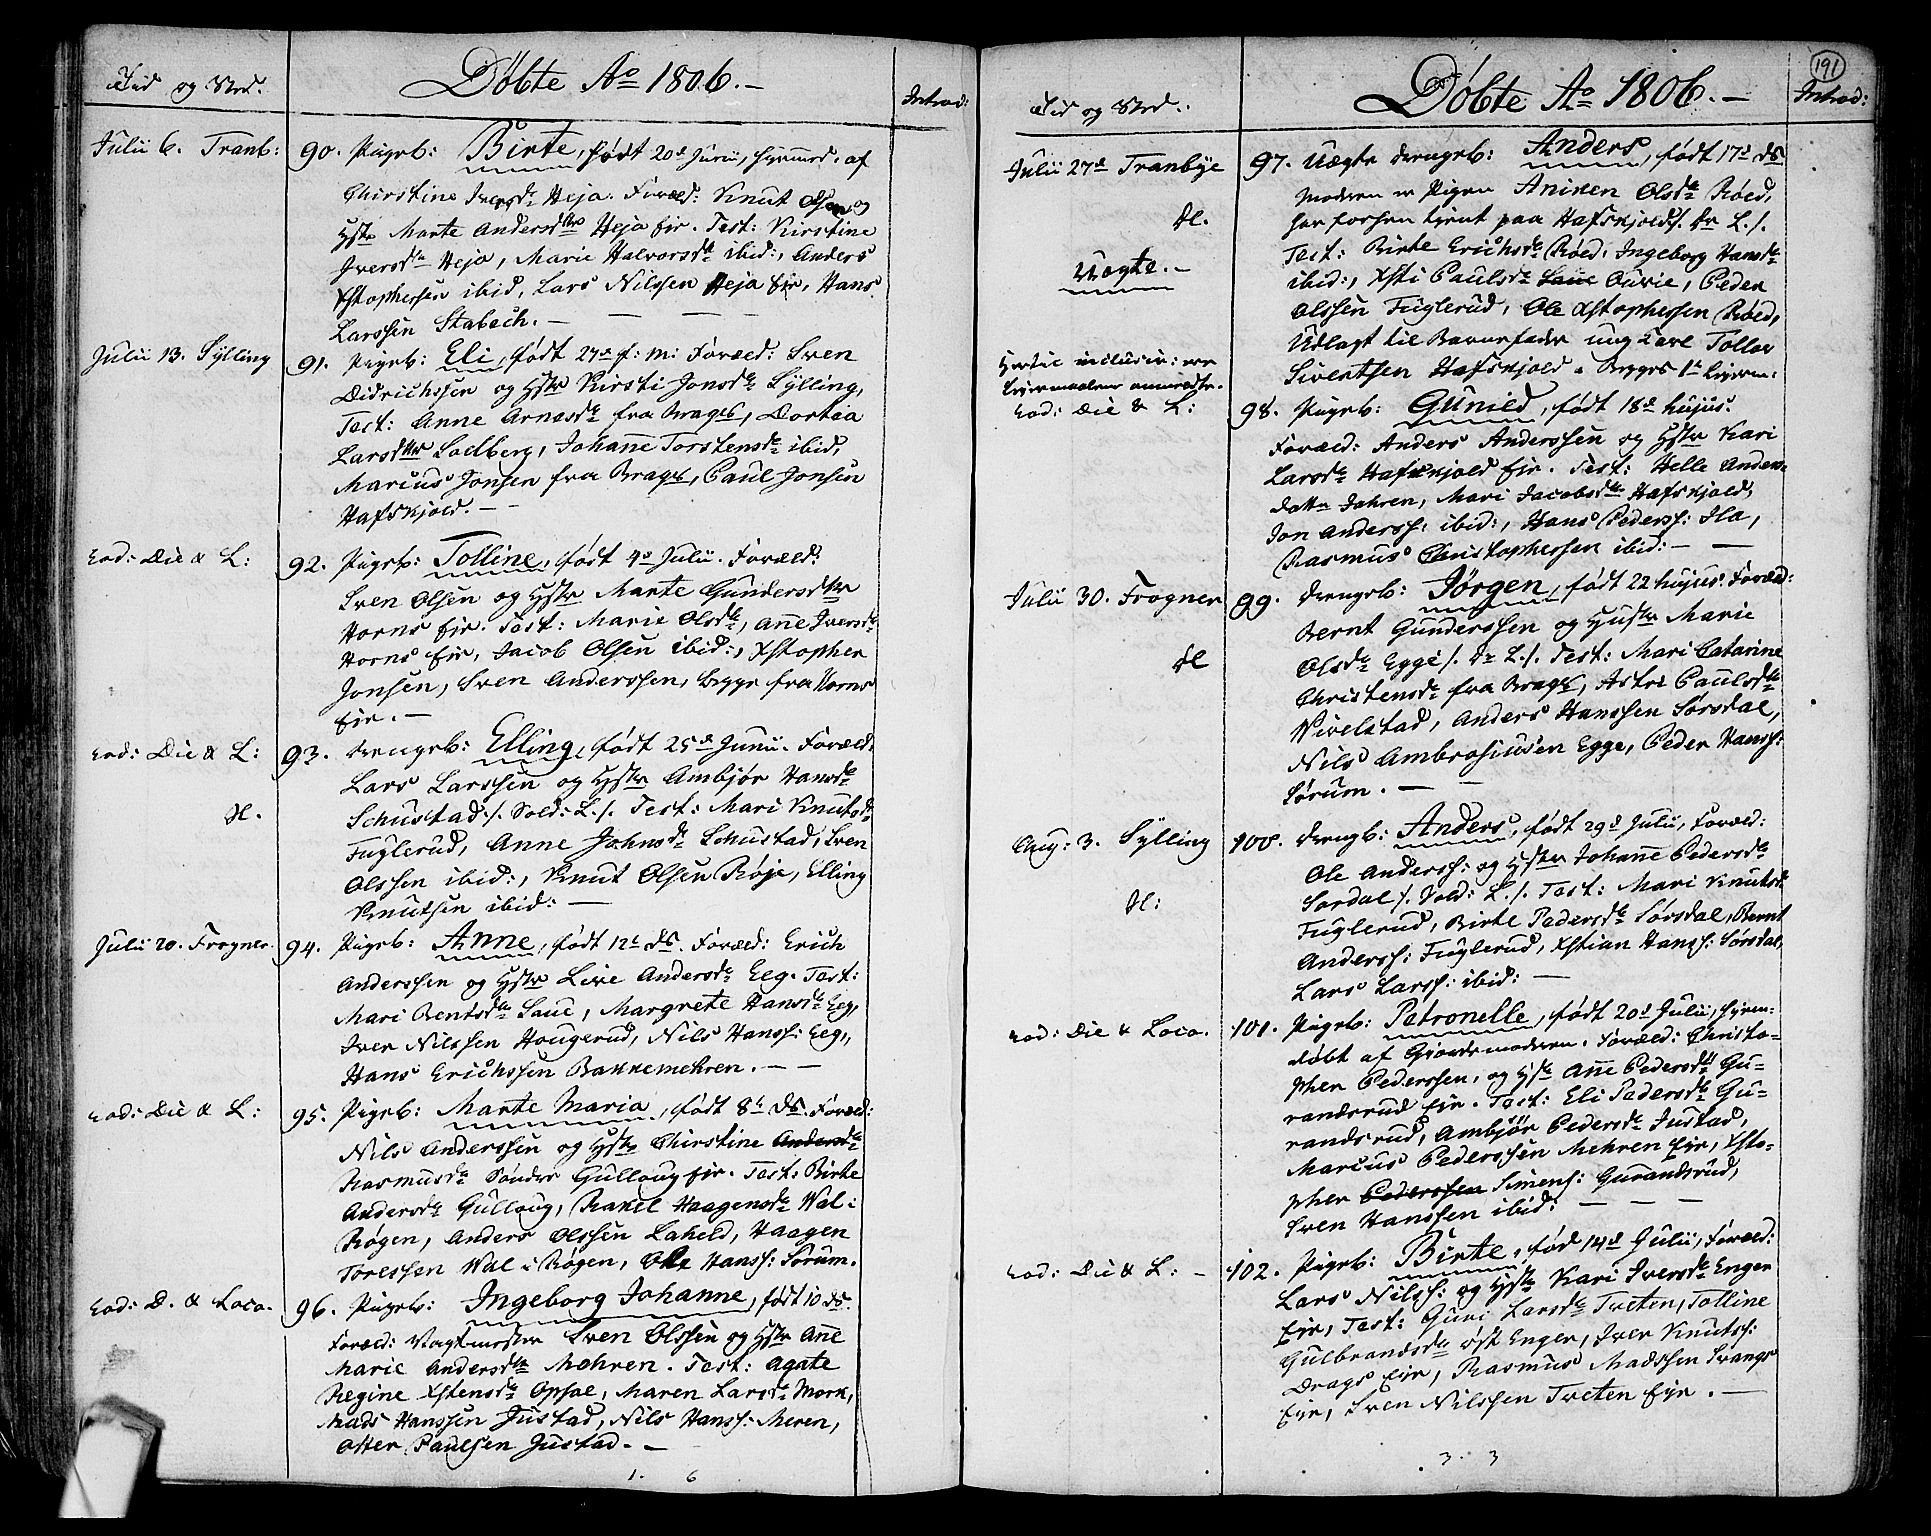 Tid og Sted.
Döbte Ao 1806.-
Introd:
Julii 6. Tranb:
90. Pigeb: Birte, født 20d Junii, hjemmed. af
Chirstine Iversdr Heja. Foræld: Knut Olsen og
Hstr Marte Andersdttr Heja Eje. Test: Kirstine
Iversdr Heja, Marie Halvorsdr ibid:, Anders
Xstophersen ibid, Lars Nilssen Heja Eje, Hans
Larssen Stabech. -
Julii 13. Sylling
91. Pigeb: Eli, født 27d f: m: Foræld: Sven
Didrichssen og Hstr Kirsti Jonsdr Sylling,
Test: Anne Arnesdr fra Brags, Dortea
Larsdttr Solberg, Johanne Torstensdr ibid,
Marcus Jonsen fra Brags, Paul Jonsen
Hafskjold. - -
eod: Die & L:
92. Pigeb: Tolline, født 4d Julii. Foræld:
Sven Olsen og Hstr Marte Gundersdttr
Horns Eje. Test: Marie Olsdr, Anne Iversdr
Horns Eje, Jacob Olsen ibid:, Xstopher
Jonsen, Sven Anderssen, begge fra Horns
Eje. -
eod: Die & L:
93. Drengeb: Elling, født 25d Junii. Foræld:
Lars Larssen og Hstr Ambjør Hansdr
Schustad /. Sold: L./. Test: Mari Knutsdr
H.
Fuglerud, Anne Johnsdr Schustad, Sven
Olssen ibid:, Knut Olsen Røje, Elling
Knutsen ibid: -
Julii 20. Frogner.
94. Pigeb: Anne, født 12t ds. Foræld: Erich
Anderssen og Hstr Live Andersdr Eeg. Test:
Mari Bentsdr Saue, Margrete Hansdr Eeg,
Iver Nilssen Hougerud, Nils Hanss: Eeg,
Hans Erichssen Bakkemehren. - -
eod: Die & L:
95. Pigeb: Marte Maria, født 8t ds. Foræld:
Nils Anderssen og Hstr Chirstine Andersdr
Rasmusdr Sønder Gulloug Eje. Test: Birte
Andersdr Gulloug, Rakel Haagensdr Wal i
Røgen, Anders Olssen Laheld, Haagen
Toressen Wal i Røgen, Ole Hanss: Sørum.
eod: D. & Loco.
96. Pigeb: Ingeborg Johanne, født 10 ds.
Foræld: Vagtmester Sven Olssen og Hstr Anne
Marie Andersdr Mehren. Test: Agate
Regine Xstensdr Opsal, Maren Larsdr Mork,
Mads Hanssen Justad, Nils Hanss: Meren,
Otter Paulsen Justad. -
1. 6
191
Tid og Sted.
Döbte Ao 1806. -
Introd:
Julii 27d Tranbye
97. Uægte Drengeb: Anders, født 17d ds
Moderen er Pigen Aniken Olsdr Røed,
H.
har forhen tjent paa Hafskjold /. de L./.
Test: Birte Erichsdr Røed, Ingeborg Hansdr
Uægte. -
ibid:, Xsti Paulsdr Saue Ourie, Peder
Olssen Fuglerud, Ole Xstophersen Røed,
Udlagt til Barnefader ung Karl Tollev
Sivertsen Hafskjold. Begges 1te Lejerm:
Hertil inclusiv: ere
Lejermaalene anmeldte.
eod: Die & L:
98. Pigeb: Gunild, født 18d hujus.
Foræld: Anders Anderssen og Hstr Kari
Larsdr Hafskjold Eje. Test: Helle Anders
datter Jahren, Mari Jacobsdr Hafskjold,
Jon Anderss: ibid:, Hans Peders: Ila,
Rasmus Christophersen ibid: - -
Julii 30. Frogner
99. Drengeb: Jörgen, født 22 hujus. Foræld:
Bernt Gunderssen og Hustr Marie
H
Olsdr Egge /. Dr L./. Test: Mari Catarine
Christensdr fra Brags, Astri Paulsdr
Nivelstad, Anders Hanssen Sørsdal,
Nils Ambrosiusen Egge, Peder Hanss:
Sørum. - -
Aug: 3. Sylling
100. Drengb: Anders, født 29d Julii, Foræld:
Ole Anderss: og Hstr Johanne Pedersdr
H:
Sørdal /. Sold: L./. Test: Mari Knutsd:
Fuglerud, Birte Pedersdr Sørsdal, Bernt
Anderss: Fuglerud, Xstian Hanss: Sørsdal,
Lars Larss: ibid: -
eod: Die & Loco.
101. Pigeb: Petronelle, født 20d Julii, hjem-
døbt af Giordemoderen. Foræld: Christo-
pher Pederssen, og Hstr Anne Pedersdr Gu-
randsrud Eje. Test: Eli Pedersdr Gu-
randsrud, Ambjør Pedersdr Justad,
Marcus Pederssen Mehren Eje, Xsto-
pher Pederssen Simens: Gurandsrud,
Sven Hanssen ibid: - -
eod: Die & L: -
102. Pigeb: Birte, fød 14d Julii, Foræld:
Lars Nilss: og Hstr Kari Iversdr Enger
Eje, Test: Guri Larsdr Treten, Tolline
Gulbrandsdr øst Enger, Iver Knutss:
Drags Eje, Rasmus Madssen Svangs
Eje, Sven Nilssen Treten Eje. -
3. 3